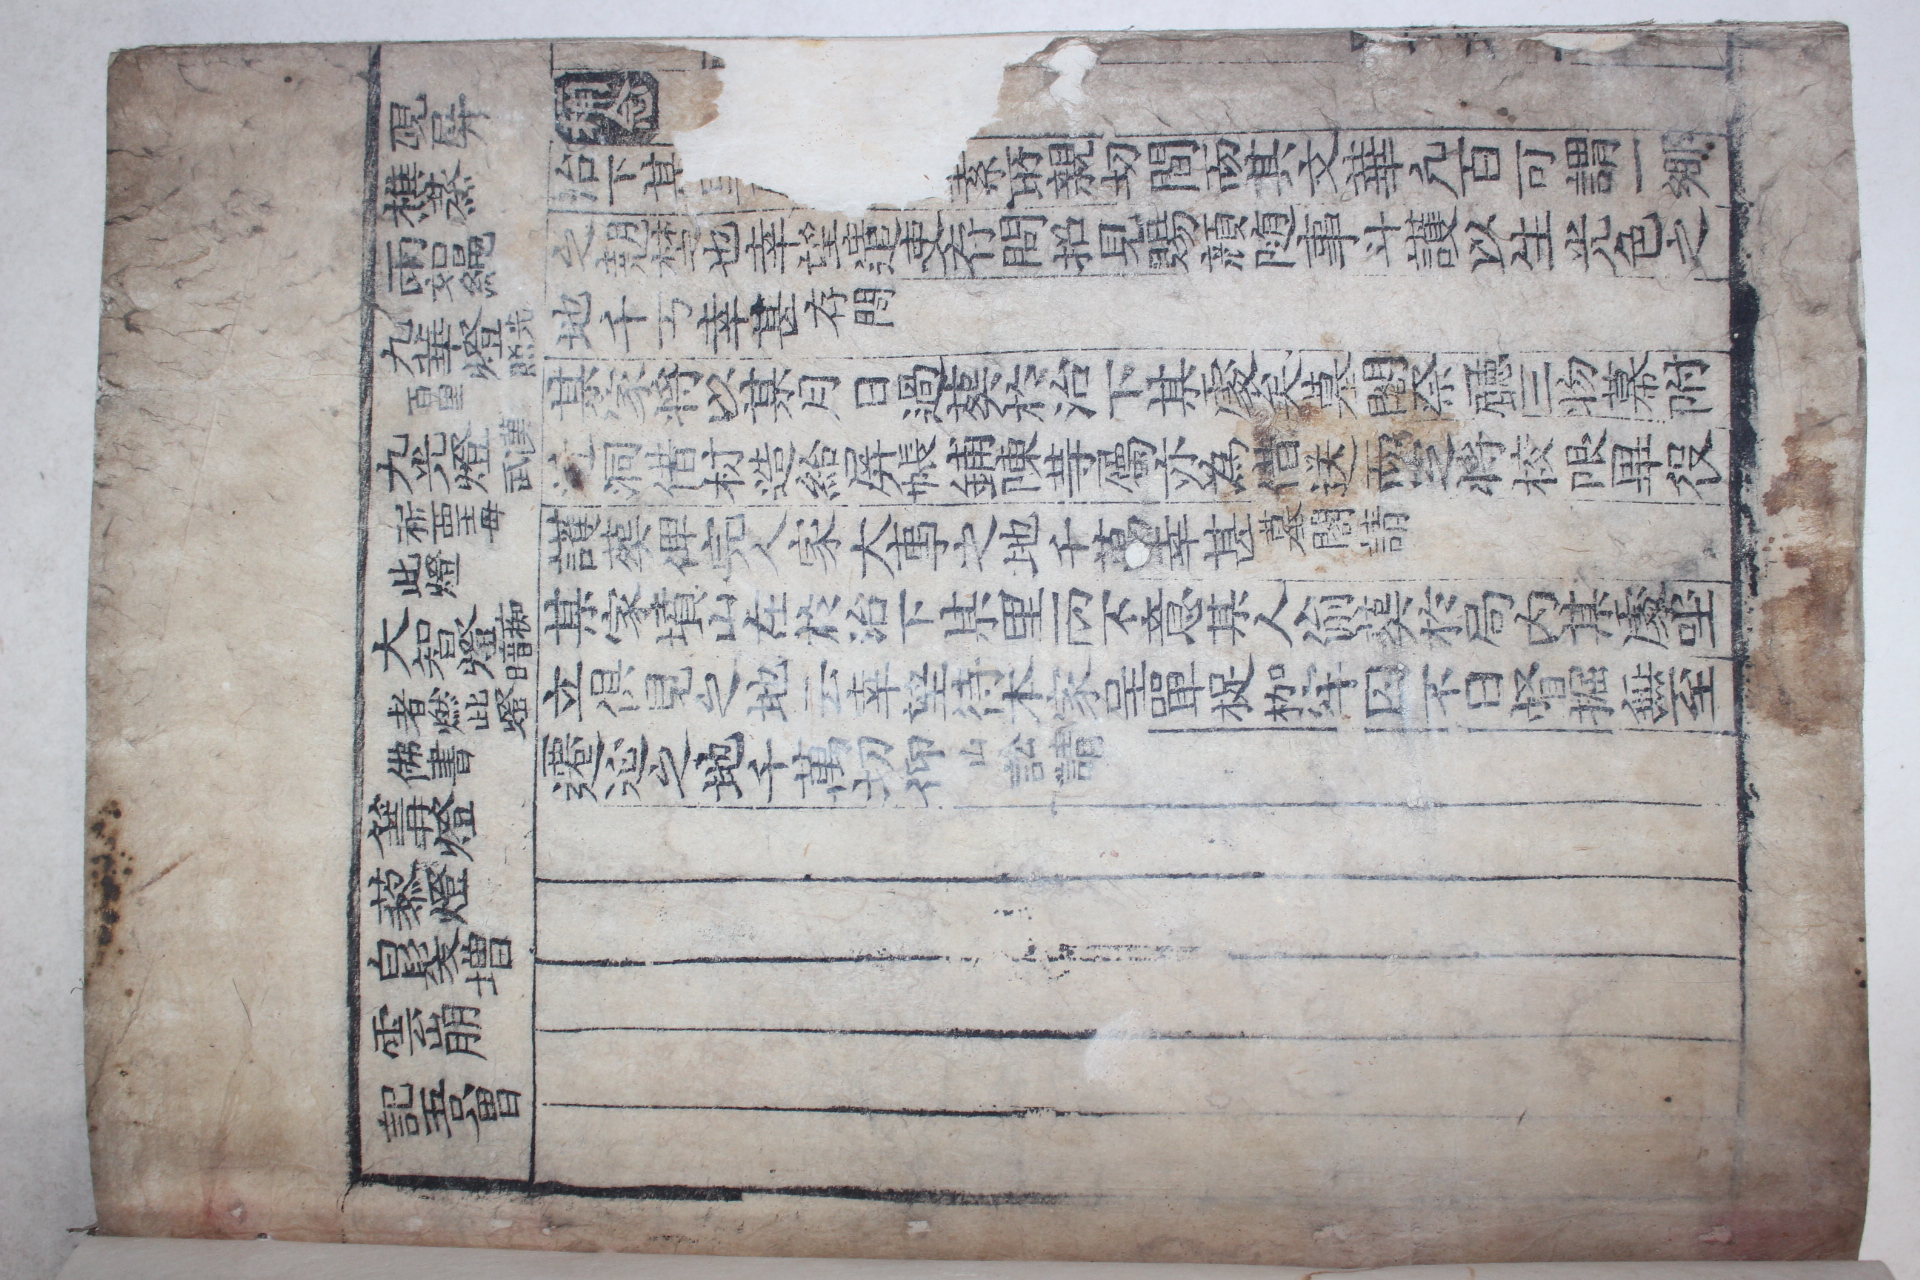 硯屏
樵蒸
雨如繩
九華燈 光照
百里
九光燈 漢武
祈西王母
此燈
大智燈 痴暗
者燃此燈
佛書
藜燈
白髮增
雲崩
記吾曾
治下某
素所親切間而其文華凡百可謂一鄉
之翹楚也幸望遣吏存問招見賜顔随事斗護以生光色之
地千万幸甚 存問
某家将以某月日過葬於治下某處矣墓閣祭廳三物幕附
近洞借材造給屏帳鋪陳等屬亦為借送而定将校限畢役
護葬俾完人家大事之地千萬幸甚 墓閣請
某家墳山在於治下某里而不意某人偷葬於局内某處坐
立俱見之地云幸望待本家呈單捉枷牢囚不日督掘無至
遷延之地千萬切仰 山訟請